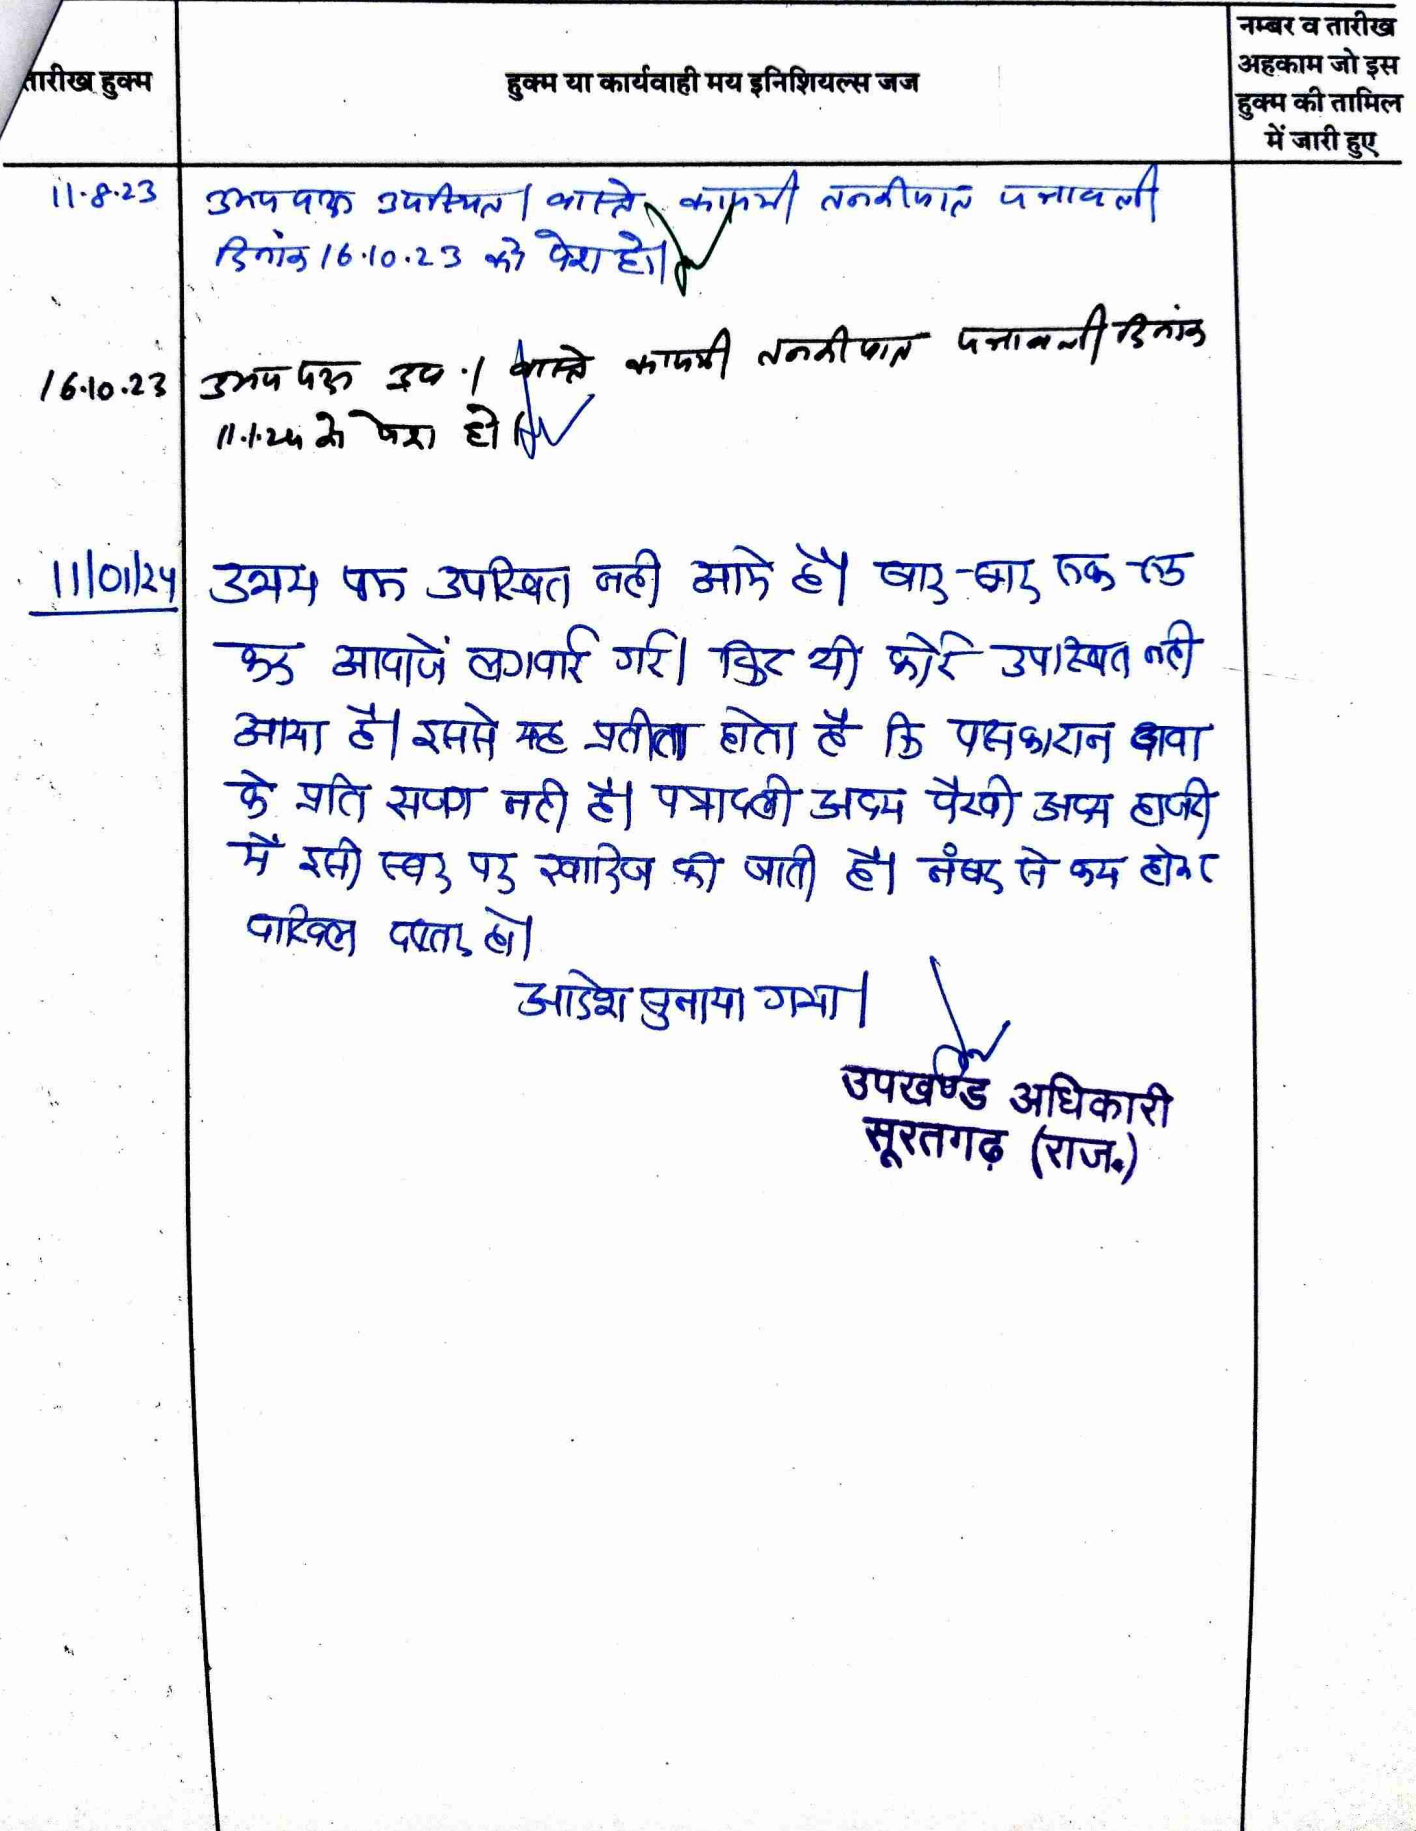 तारीख हुक्म
हुक्म या कार्यवाही मय इनिशियल्स जज
नम्बर व तारीख
अहकाम जो इस
हुक्म की तामिल
में जारी हुए
11.8.23 उभय पक्ष उपस्थित। वास्ते कायमी तनकीयात पत्रावली
दिनांक 16.10.23 को पेश हो।
16.10.23 उभय पक्ष उप.। वास्ते कायमी तनकीयात पत्रावली दिनांक
11.1.24 को पेश हो।
11/01/24 उभय पक्ष उपस्थित नही आये है। बार-बार रूक-रूक
कर आवाजें लगवाई गई। फिर भी कोई उपस्थित नही
आया है। इससे यह प्रतीत होता है कि पक्षकारान दावा
के प्रति सजग नही है। पत्रावली अदम पैरवी अदम हाजरी
में इसी स्तर पर खारिज की जाती है। नंबर से कम होकर
दाखिल दफ्तर हो।
आदेश सुनाया गया।
उपखण्ड अधिकारी
सूरतगढ़ (राज.)